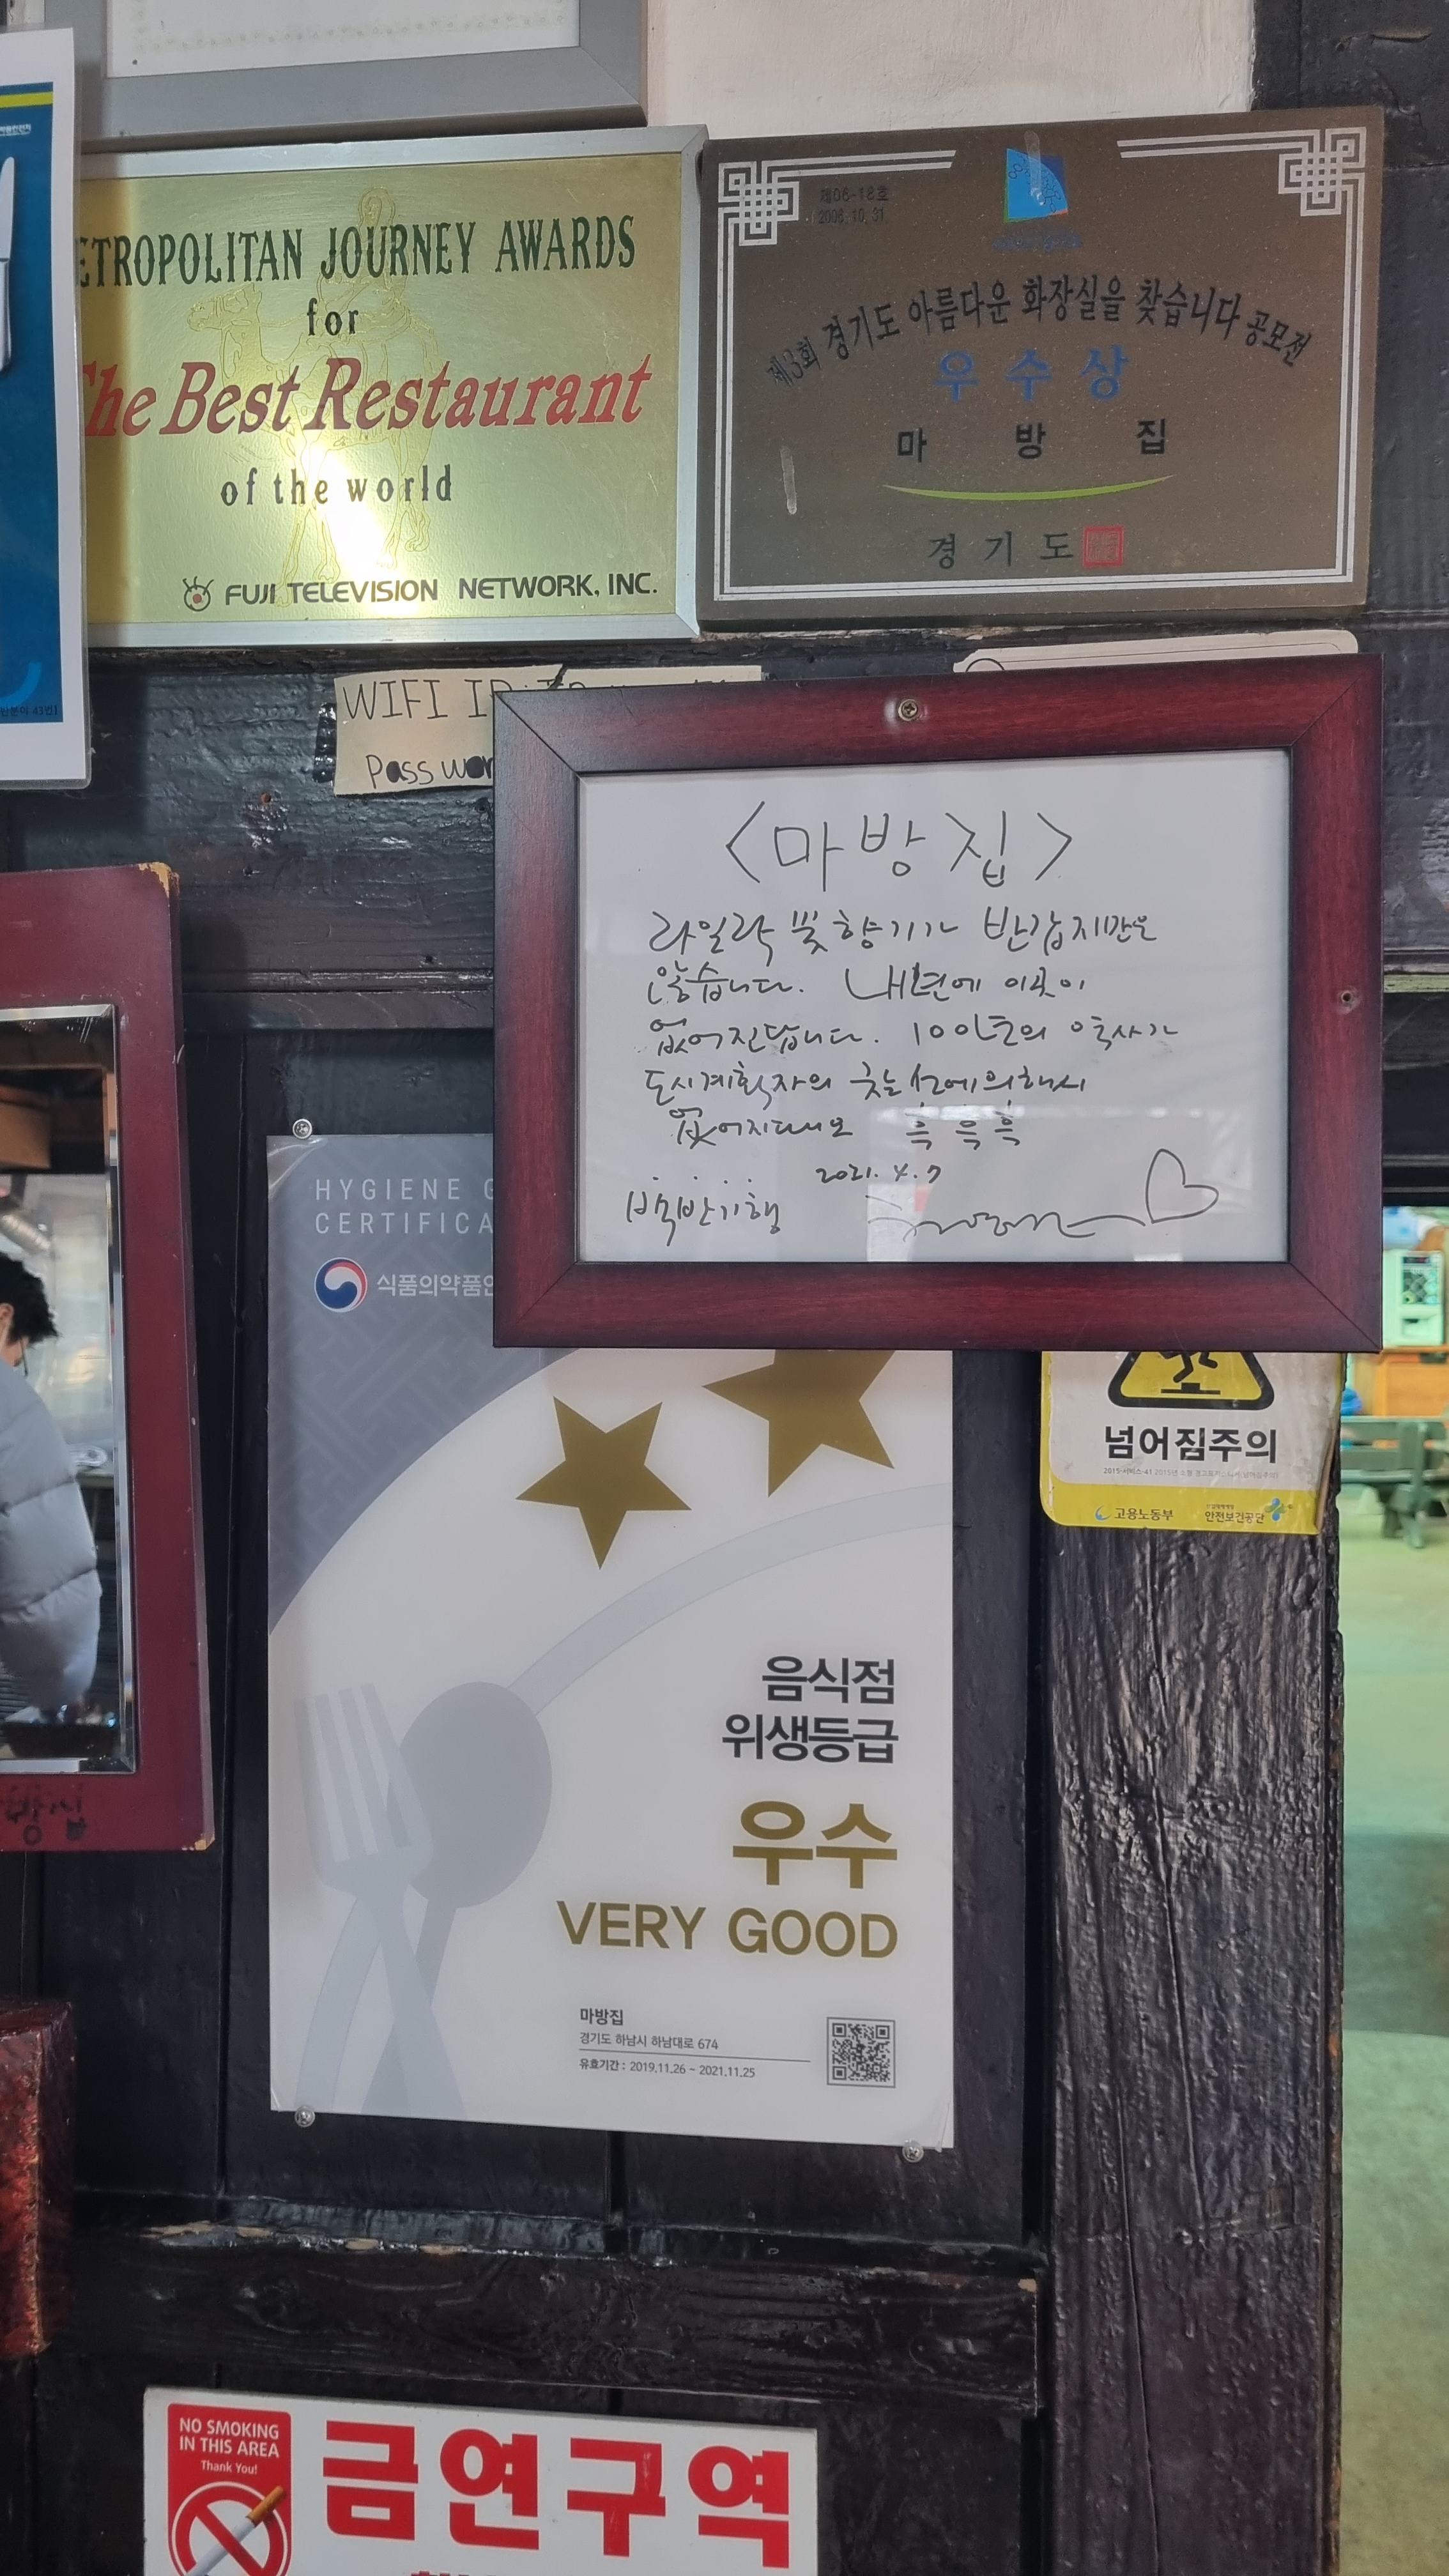 ETROPOLITAN JOURNEY AWARDS
for
The Best Restaurant
of the world
FUJI TELEVISION NETWORK, INC.
제06-18호
2006. 10. 31.
제3회 경기도 아름다운 화장실을 찾습니다 공모전
우수상
마방집
경기도
WIFI ID:
Passwor
<마방집>
라일락 꽃 향기가 반갑지만은
않습니다. 내년에 이곳이
없어진답니다. 100년의 역사가
도시계획자의 굿는 선에 의해서
없어지다니요 흑 흑 흑
2021. 4. 7
백반기행
HYGIENE G
CERTIFICA
식품의약품안
음식점
위생등급
우수
VERY GOOD
마방집
경기도 하남시 하남대로 674
유효기간 : 2019.11.26 ~ 2021.11.25
넘어짐주의
고용노동부
안전보건공단
방집
NO SMOKING
IN THIS AREA
Thank You!
금연구역